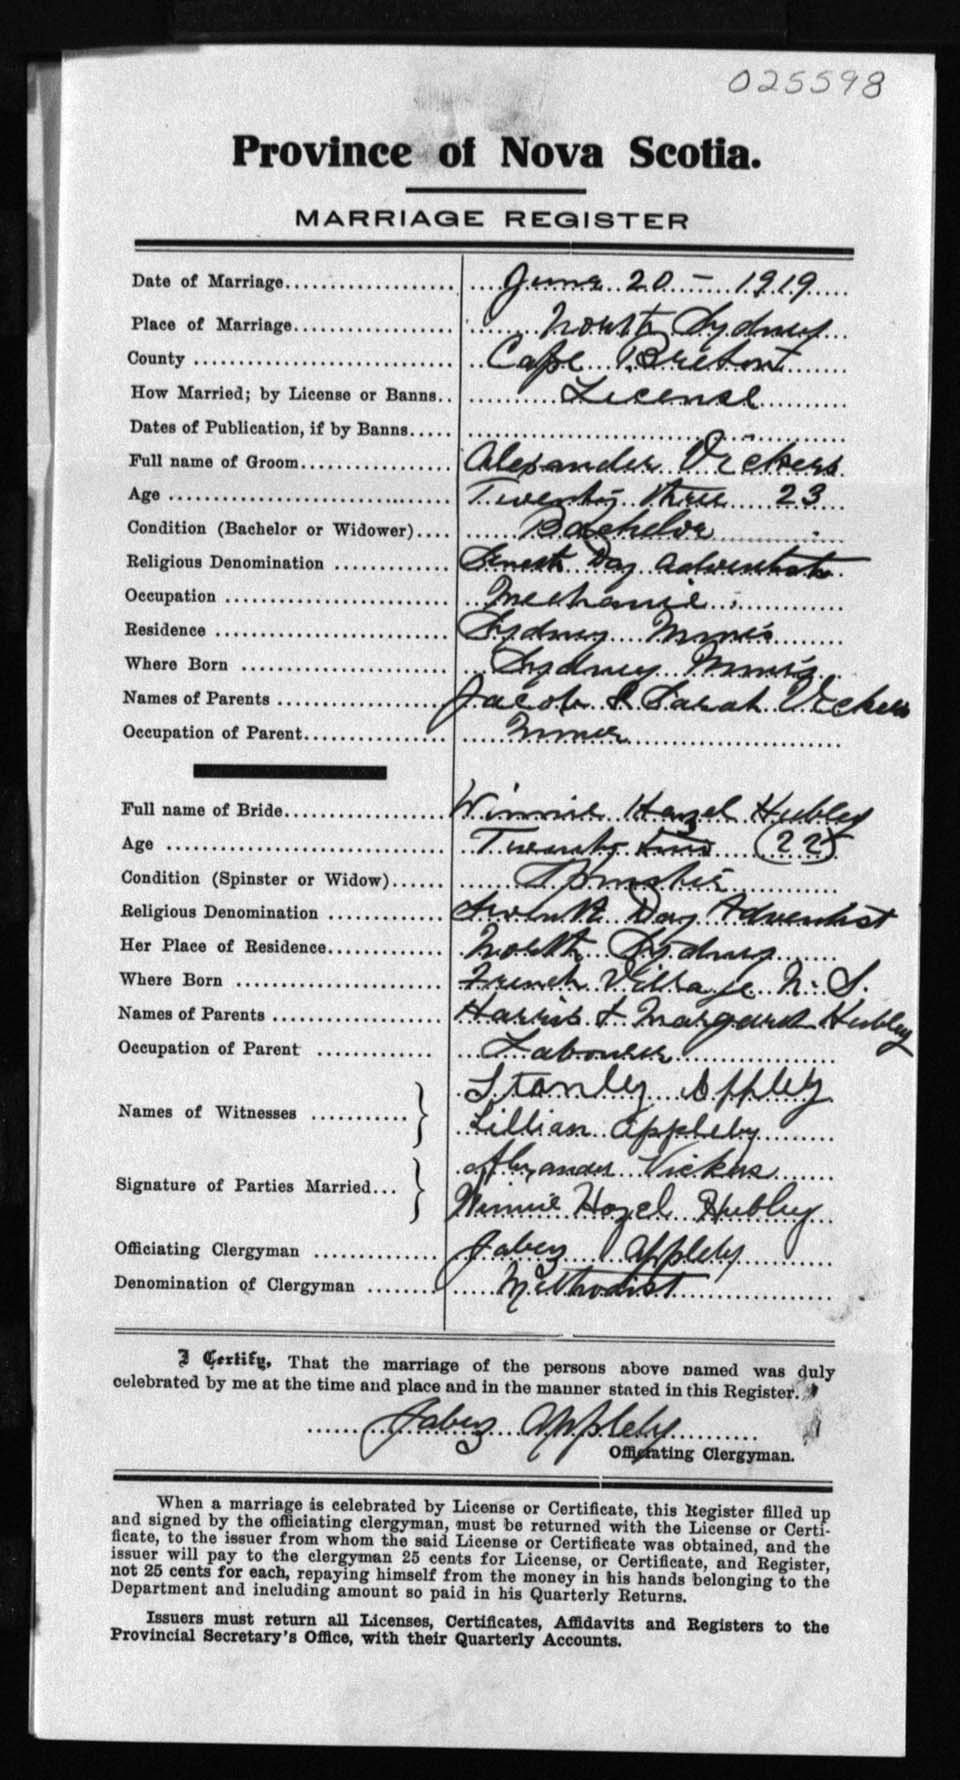 025598
Province of Nova Scotia.
MARRIAGE REGISTER
Date of Marriage June 20 - 1919
Place of Marriage North Sydney
County Cape Breton
How Married; by License or Banns License
Dates of Publication, if by Banns
Full name of Groom Alexander Vickers
Age Twenty three 23
Condition (Bachelor or Widower) Bachelor
Religious Denomination Day Adventist
Occupation Mechanic
Residence Sydney Mines
Where Born Sydney Mines
Names of Parents Jacob & Sarah Vickers
Occupation of Parent Miner
Full name of Bride Winnie Hazel Hubley
Age Twenty two (22)
Condition (Spinster or Widow) Spinster
Religious Denomination Seventh Day Adventist
Her Place of Residence North Sydney
Where Born French Village N. S.
Names of Parents Harris & Margaret Hubley
Occupation of Parent Labourer
Names of Witnesses Stanley Appleby
Lillian Appleby
Signature of Parties Married Alexander Vickers
Winnie Hazel Hubley
Officiating Clergyman Jabez Appleby
Denomination of Clergyman Methodist
I Certify, That the marriage of the persons above named was duly
celebrated by me at the time and place and in the manner stated in this Register.
Jabez Appleby
Officiating Clergyman.
When a marriage is celebrated by License or Certificate, this Register filled up
and signed by the officiating clergyman, must be returned with the License or Certi-
ficate, to the issuer from whom the said License or Certificate was obtained, and the
issuer will pay to the clergyman 25 cents for License, or Certificate, and Register,
not 25 cents for each, repaying himself from the money in his hands belonging to the
Department and including amount so paid in his Quarterly Returns.
Issuers must return all Licenses, Certificates, Affidavits and Registers to the
Provincial Secretary's Office, with their Quarterly Accounts.